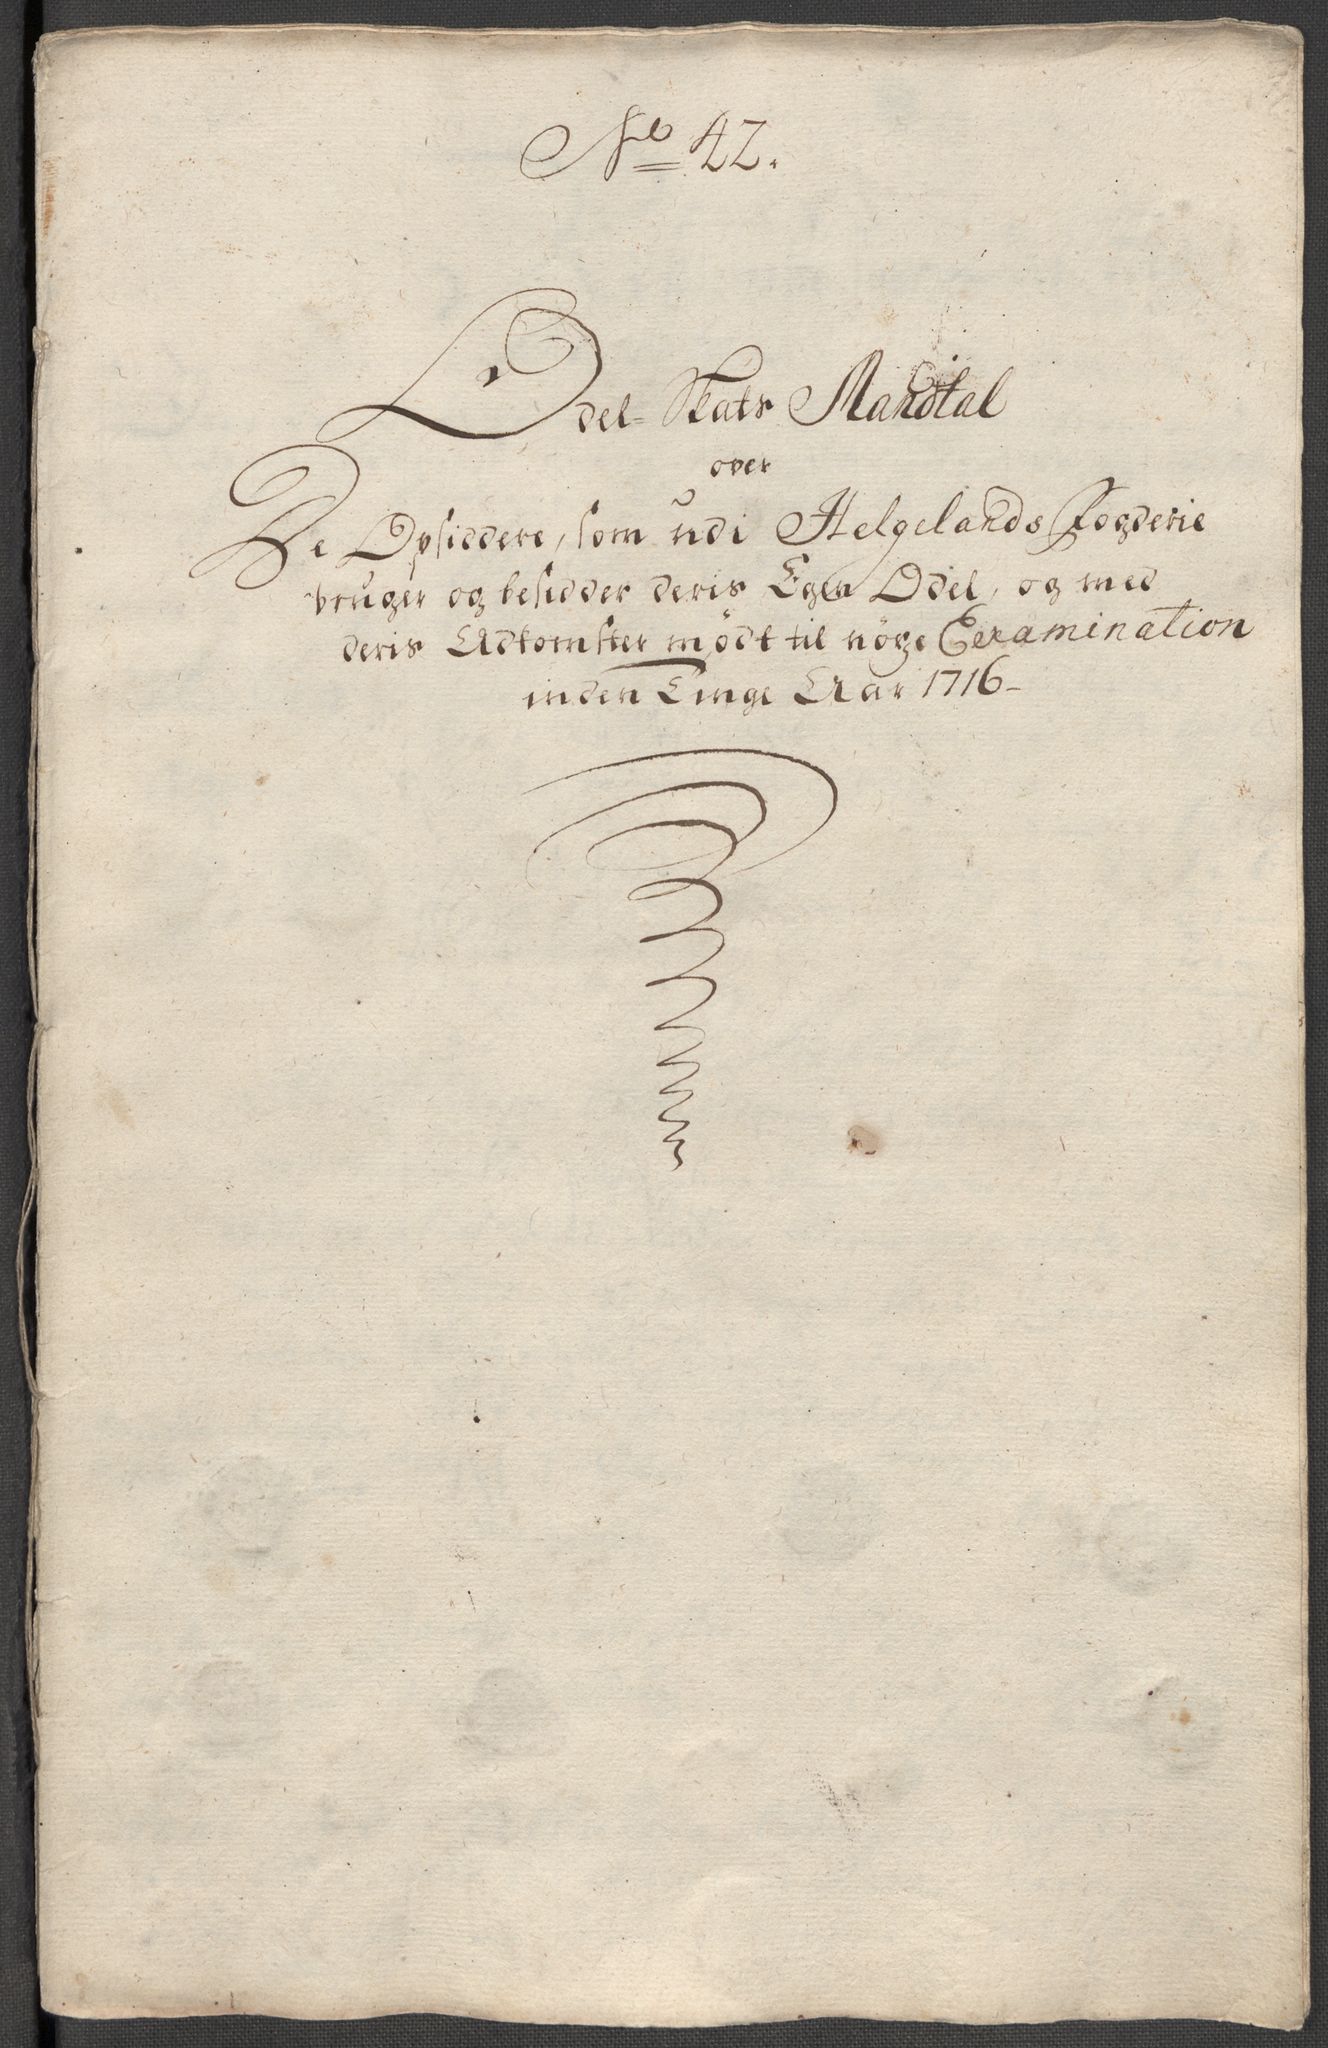 No 42.
Odel-Skats Mandtal
over
De Opsiddere, som udi Helgelands Fogderie
bruger og besidder deris Egen Odel, og med
deris Adkomster mödt til nöye Examination
inden Tinge Aar 1716-